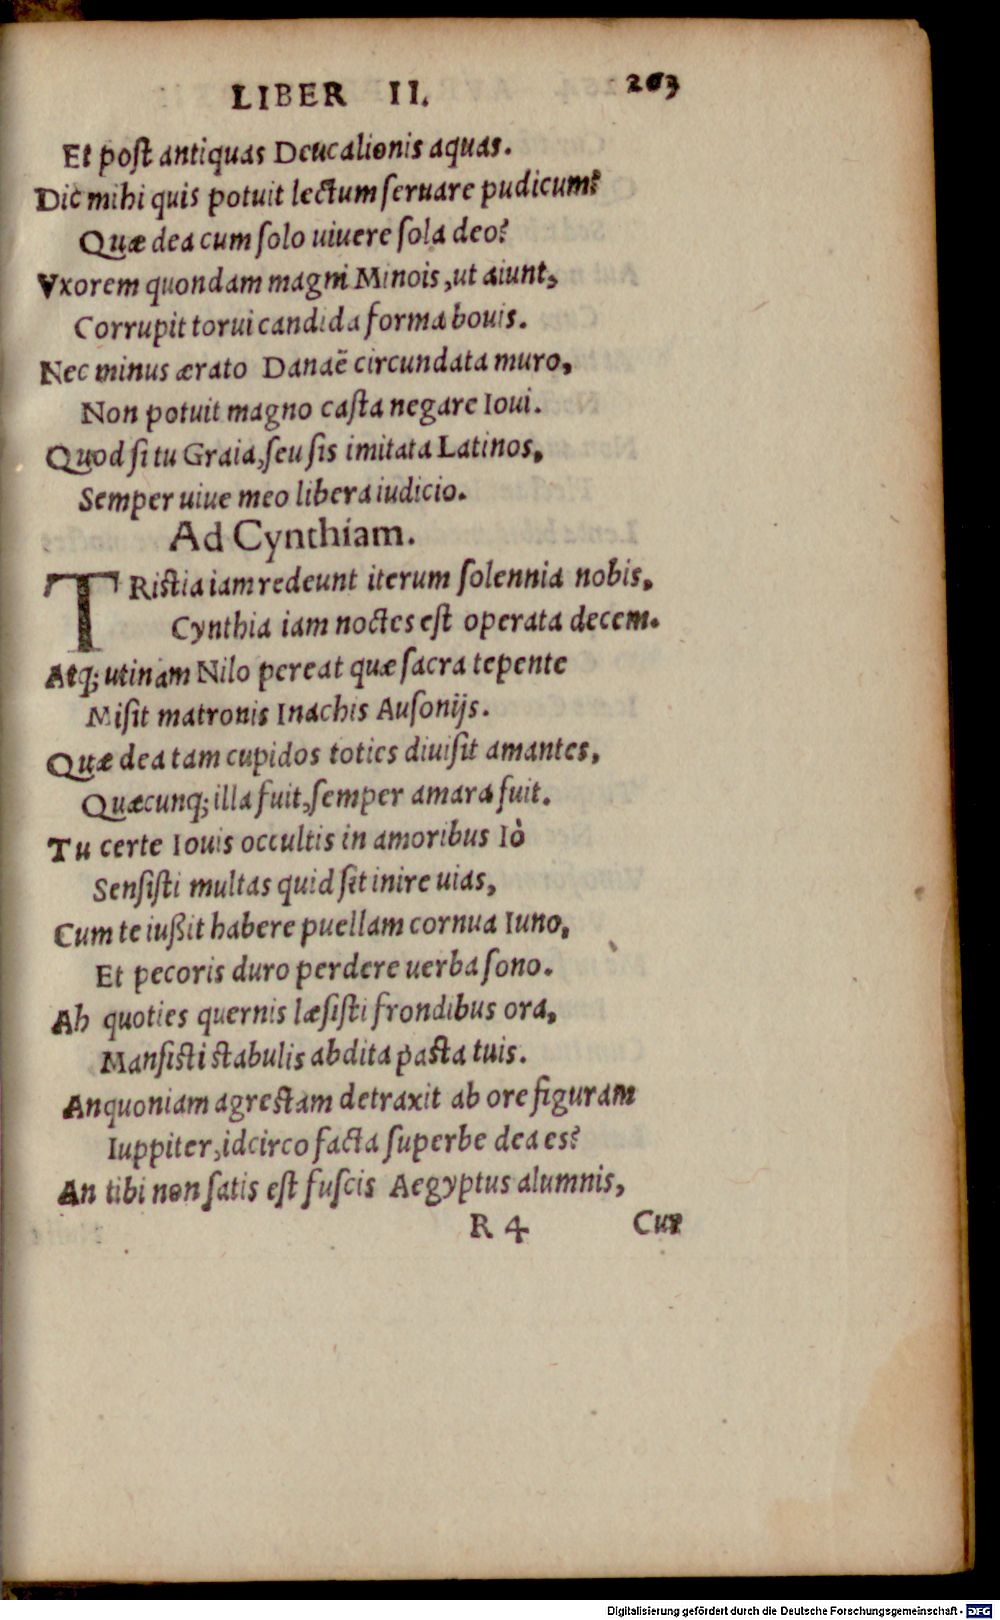 LIBER II. 263
Et poſt antiquas Deucalionis aquas.
Dic mihi quis potuit lectum ſeruare pudicum?
Quæ dea cum ſolo uiuere ſola deo?
Vxorem quondam magni Minois, ut aiunt,
Corrupit torui candida forma bouis.
Nec minus ærato Danaë circundata muro,
Non potuit magno caſta negare Ioui.
Quod ſi tu Graia, ſeu ſis imitata Latinos,
Semper uiue meo libera iudicio.
Ad Cynthiam.
TRiſtia iam redeunt iterum ſolennia nobis,
Cynthia iam noctes eſt operata decem.
Atq; utinam Nilo pereat quæ ſacra tepente
Miſit matronis Inachis Auſonijs.
Quæ dea tam cupidos toties diuiſit amantes,
Quæcunq; illa fuit, ſemper amara fuit.
Tu certe Iouis occultis in amoribus Iò
Senſiſti multas quid ſit inire uias,
Cum te iußit habere puellam cornua Iuno,
Et pecoris duro perdere uerba ſono.
Ah quoties quernis læſiſti frondibus ora,
Manſiſti ſtabulis abdita paſta tuis.
An quoniam agreſtam detraxit ab ore figuram
Iuppiter, idcirco facta ſuperbe dea es?
An tibi non ſatis eſt fuſcis Aegyptus alumnis,
R 4 Cur
Digitalisierung gefördert durch die Deutsche Forschungsgemeinschaft - DFG